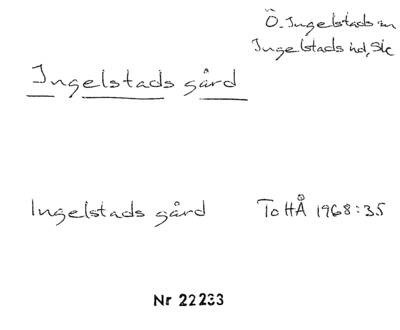 Ö. Ingelstads sn
Ingelstads hd, Sk
Ingelstads gård
Ingelstads gård ToHÅ 1968:35
Nr 22233